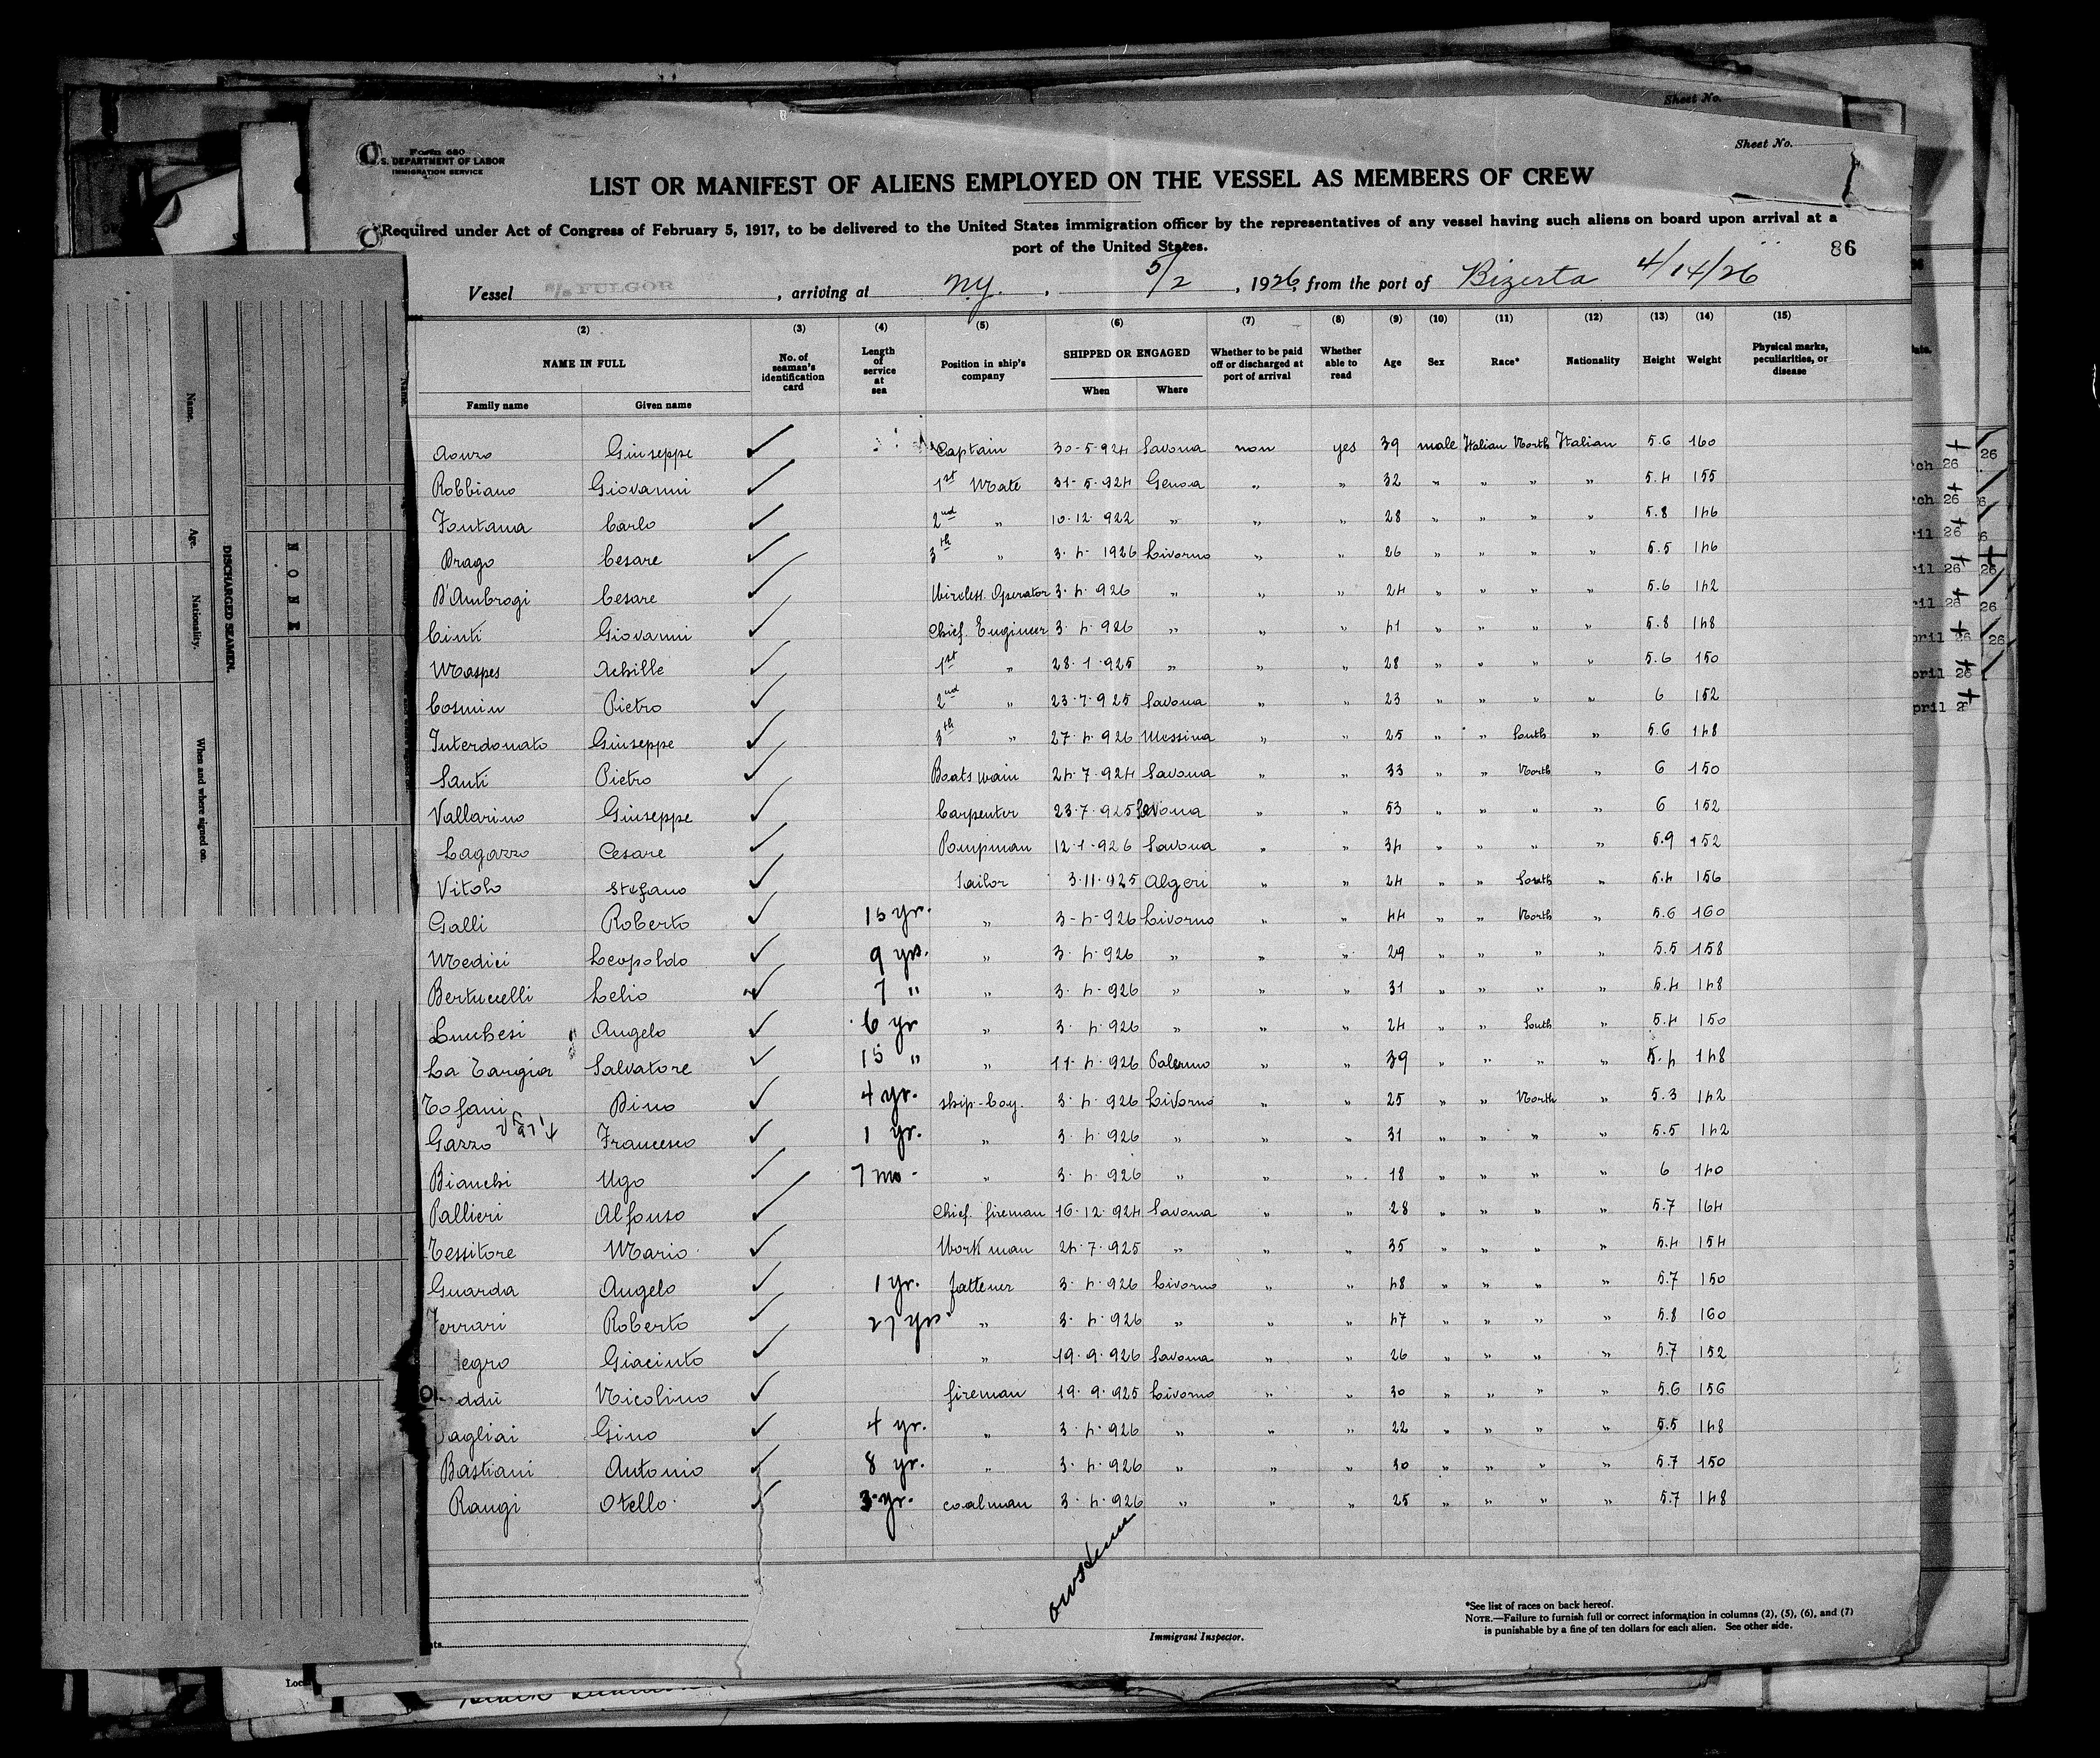 Sheet No.
Sheet No.
Form 680
U.S. DEPARTMENT OF LABOR
IMMIGRATION SERVICE
LIST OR MANIFEST OF ALIENS EMPLOYED ON THE VESSEL AS MEMBERS OF CREW
Required under Act of Congress of February 5, 1917, to be delivered to the United States immigration officer by the representatives of any vessel having such aliens on board upon arrival at a
port of the United States.
86
Vessel S/S FULGOR, arriving at N.Y., 5/2, 1926, from the port of Bizerta 4/14/26
(2) (3) (4) (5) (6) (7) (8) (9) (10) (11) (12) (13) (14) (15)
NAME IN FULL No. of seaman's identification card Length of service at sea Position in ship's company SHIPPED OR ENGAGED Whether to be paid off or discharged at port of arrival Whether able to read Age Sex Race* Nationality Height Weight Physical marks, peculiarities, or disease
Family name Given name When Where
Aonzo Giuseppe ✓ Captain 30-5-924 Savona non yes 39 male Italian North Italian 5.6 160
Robbiano Giovanni ✓ 1st Mate 31-5-924 Genoa " " 32 " " " " 5.4 155
Fontana Carlo ✓ 2nd " 10-12-922 " " " 28 " " " " 5.8 146
Drago Cesare ✓ 3th " 3-4-1926 Livorno " " 26 " " " " 5.5 146
D'Ambrogi Cesare ✓ Wireless Operator 3-4-926 " " " 24 " " " " 5.6 142
Cinti Giovanni ✓ Chief Engineer 3-4-926 " " " 41 " " " " 5.8 148
Maspes Achille ✓ 1st " 28-1-925 " " " 28 " " " " 5.6 150
Cosmin Pietro ✓ 2nd " 23-7-925 Savona " " 23 " " " " 6 152
Interdonato Giuseppe ✓ 3th " 27-4-926 Messina " " 25 " " South " 5.6 148
Santi Pietro ✓ Boatswain 24-7-924 Savona " " 33 " " North " 6 150
Vallarino Giuseppe ✓ Carpenter 23-7-925 Savona " " 53 " " " " 6 152
Lagazzo Cesare ✓ Pompman 12-1-926 Savona " " 34 " " " " 5.9 152
Vitolo Stefano ✓ Sailor 3-11-925 Algeri " " 24 " " South " 5.4 156
Galli Roberto ✓ 15 yr. " 3-4-926 Livorno " " 44 " " North " 5.6 160
Medici Leopoldo ✓ 9 yrs. " 3-4-926 " " " 29 " " " " 5.5 158
Bertuccelli Lelio ✓ 7 " " 3-4-926 " " " 31 " " " " 5.4 148
Lucchesi Angelo ✓ 6 yr " 3-4-926 " " " 24 " " South " 5.4 150
La Targia Salvatore ✓ 15 " " 11-4-926 Palermo " " 39 " " " " 5.4 148
Tofani Dino ✓ 4 yr. ship-boy. 3-4-926 Livorno " " 25 " " North " 5.3 142
Gazzo Francesco ✓ 1 yr. " 3-4-926 " " " 31 " " " " 5.5 142
Bianchi Ugo ✓ 7 mo " 3-4-926 " " " 18 " " " " 6 140
Pallieri Alfonso ✓ Chief fireman 16-12-924 Savona " " 28 " " " " 5.7 164
Tessitore Mario ✓ Workman 24-7-925 " " " 35 " " " " 5.4 154
Guarda Angelo ✓ 1 yr. fattener 3-4-926 Livorno " " 48 " " " " 5.7 150
Ferrari Roberto ✓ 27 yrs " 3-4-926 " " " 47 " " " " 5.8 160
Negro Giacinto ✓ " 19-9-926 Savona " " 26 " " " " 5.7 152
ddu Nicolino ✓ fireman 19-9-925 Livorno " " 30 " " " " 5.6 156
agliai Gino ✓ 4 yr. " 3-4-926 " " " 22 " " " " 5.5 148
Bastiani Antonio ✓ 8 yr. " 3-4-926 " " " 30 " " " " 5.7 150
Raugi Otello ✓ 3 yr. coalman 3-4-926 " " " 25 " " " " 5.7 148
Immigrant Inspector.
*See list of races on back hereof.
NOTE.—Failure to furnish full or correct information in columns (2), (5), (6), and (7)
is punishable by a fine of ten dollars for each alien. See other side.
DISCHARGED SEAMEN.
NONE
Name.
Age.
Nationality.
When and where signed on.